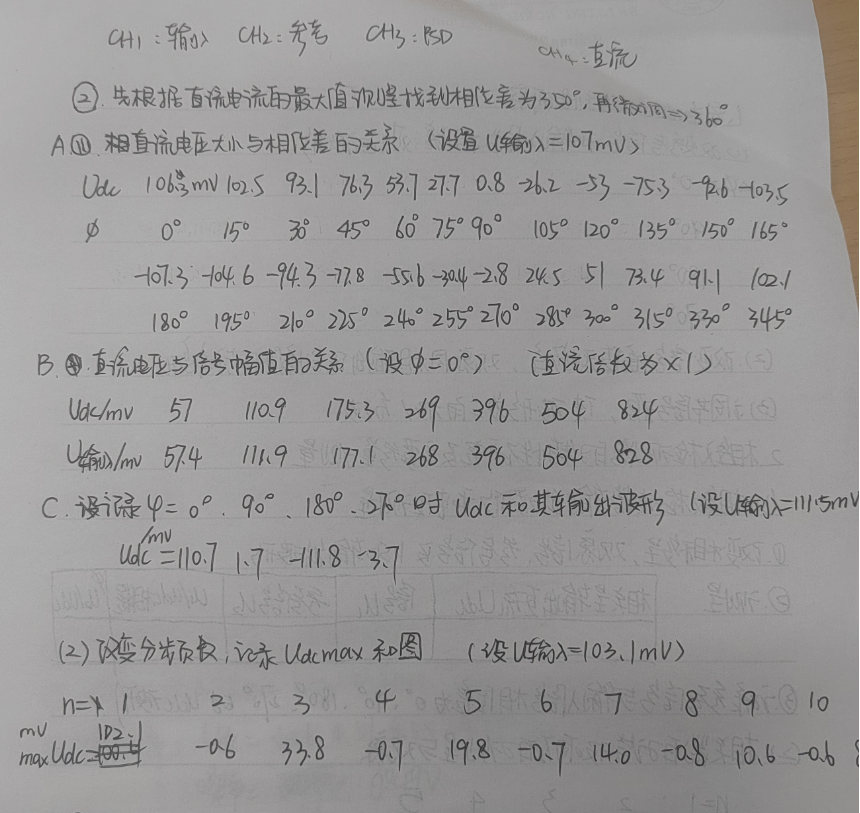 CH1:输入 CH2:参考 CH3:PSD CH4:直流
②.先根据直流电流的最大值观察找到相位差为350°,再微调⇒360°
A①.相直流电压大小与相位差的关系 (设置U输入=107mV)
Udc 106.3mV 102.5 93.1 76.3 53.7 27.7 0.8 -26.2 -53 -75.3 -92.6 -103.5
φ 0° 15° 30° 45° 60° 75° 90° 105° 120° 135° 150° 165°
-107.3 -104.6 -94.3 -77.8 -55.6 -30.4 -2.8 24.5 51 73.4 91.1 102.1
180° 195° 210° 225° 240° 255° 270° 285° 300° 315° 330° 345°
B. 直流电压与信号幅值的关系 (设φ=0°) (直流倍数为×1)
Udc/mv 57 110.9 175.3 269 396 504 824
U输入/mv 57.4 111.9 177.1 268 396 504 828
C. 记录φ=0°、90°、180°、270°时Udc和其输出波形 (设U输入=111.5mV
Udc/mv=110.7 1.7 -111.8 -3.7
(2)改变分步页数,记录Udcmax和图 (设U输入=103.1mV)
n= 1 2 3 4 5 6 7 8 9 10
mv
maxUdc= 102.1 -0.6 33.8 -0.7 19.8 -0.7 14.0 -0.8 10.6 -0.6